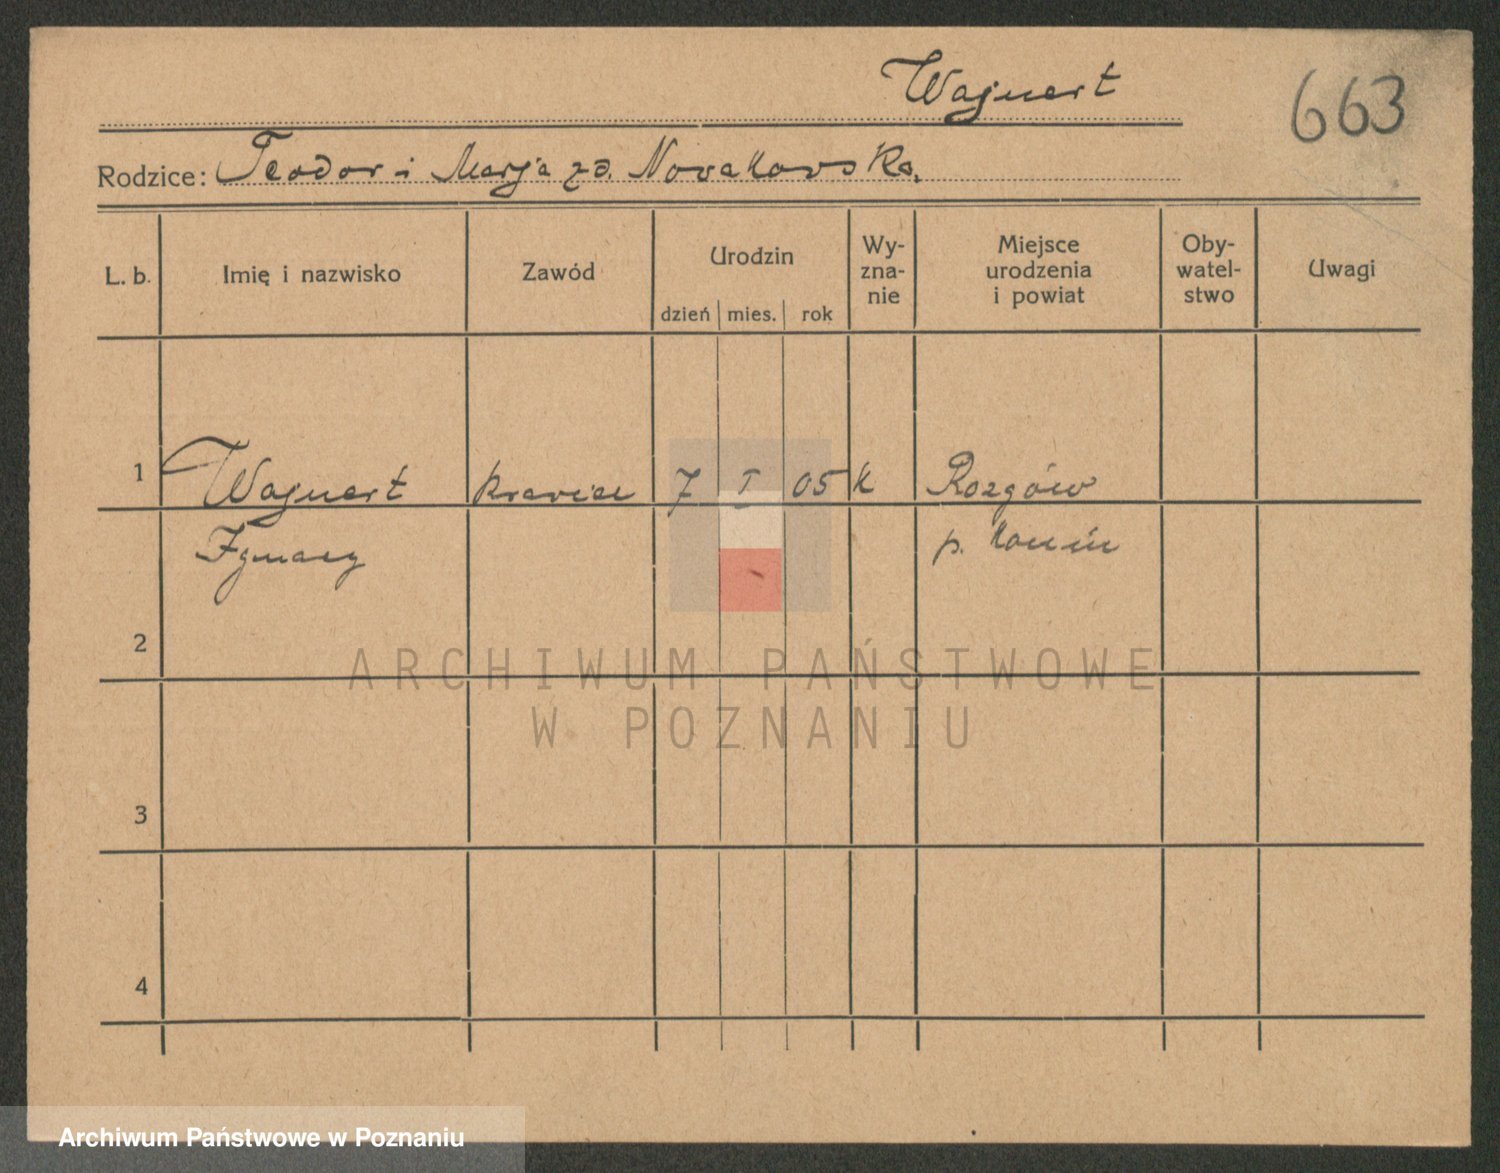 Wagnert
663
Rodzice: Teodor i Marja zd. Nowakowska.
L. b. Imię i nazwisko Zawód Urodzin Wy- zna- nie Miejsce urodzenia i powiat Oby- watel- stwo Uwagi
dzień mies. rok
1 Wagnert krawiec 7 I 05 k Rozgów
Ignacy p. Konin
2
ARCHIWUM PAŃSTWOWE
W POZNANIU
3
4
Archiwum Państwowe w Poznaniu